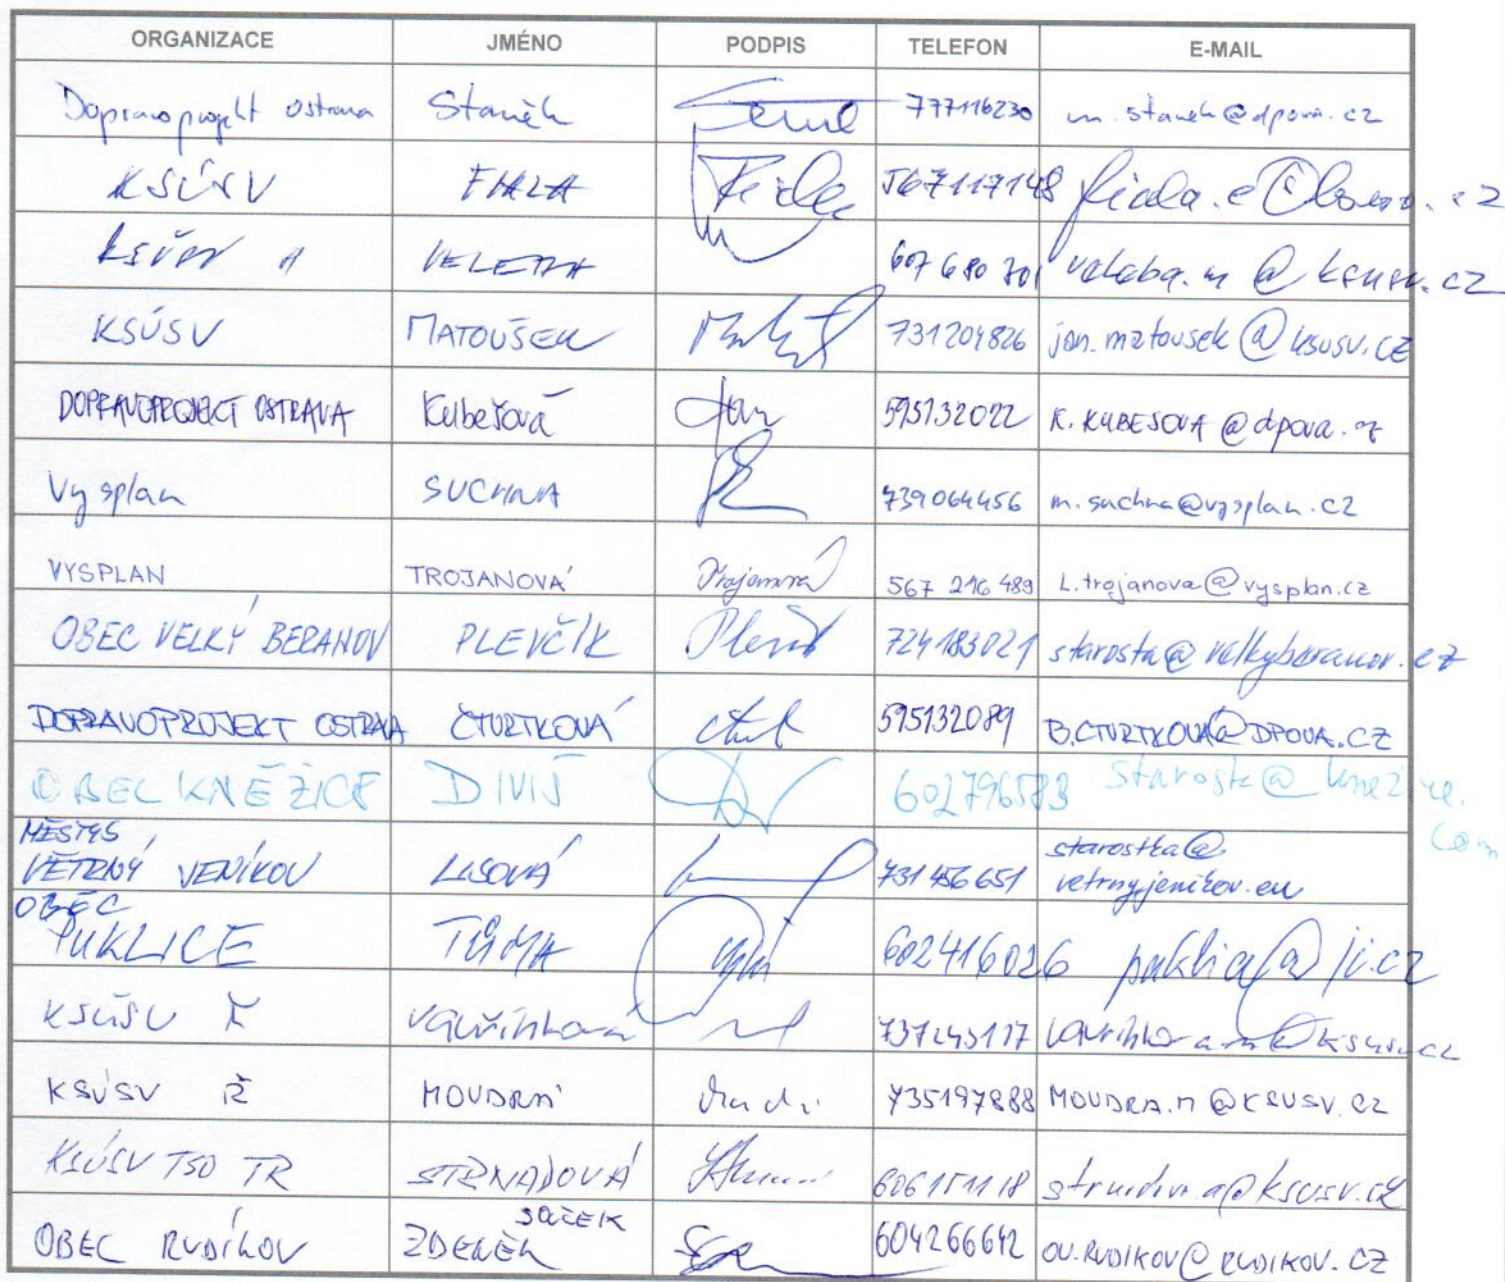 ORGANIZACE JMÉNO PODPIS TELEFON E-MAIL
Dopravoprojekt Ostrava Staněk 777116230 m.stanek@dpova.cz
KSÚSV FIALA 567117148 fiala.e@ksusv.cz
KSÚSV VELEBA 607 680 701 veleba.m@ksusv.cz
KSÚSV MATOUŠEK 731204826 jan.matousek@ksusv.cz
DOPRAVOPROJEKT OSTRAVA Kubešová 595132022 K.KUBESOVA@dpova.cz
Vysplan SUCHNA 739064456 m.suchna@vysplan.cz
VYSPLAN TROJANOVÁ Trojanová 567 216 489 L.trojanova@vysplan.cz
OBEC VELKÝ BERANOV PLEVČÍK 724183021 starosta@velkyberanov.cz
DOPRAVOPROJEKT OSTRAVA ČTVRTKOVÁ 595132089 B.CTVRTKOVA@DPOVA.CZ
OBEC KNĚŽICE DIVIŠ 602796583 starosta@knezice.
com
MĚSTYS
VĚTRNÝ JENÍKOV LISOVÁ 731456651 starostka@
vetrnyjenikov.eu
OBEC
PUKLICE TŮMA 602416026 puklice@ji.cz
KSÚSV Vavřínková 737243117
KSÚSV MOUDRÁ 735197888 MOUDRA.M@KSUSV.CZ
KSÚSV TSO TR STRNADOVÁ
SOUČEK
OBEC RUDÍKOV ZDENĚK 604266642 OU.RUDIKOV@RUDIKOV.CZ